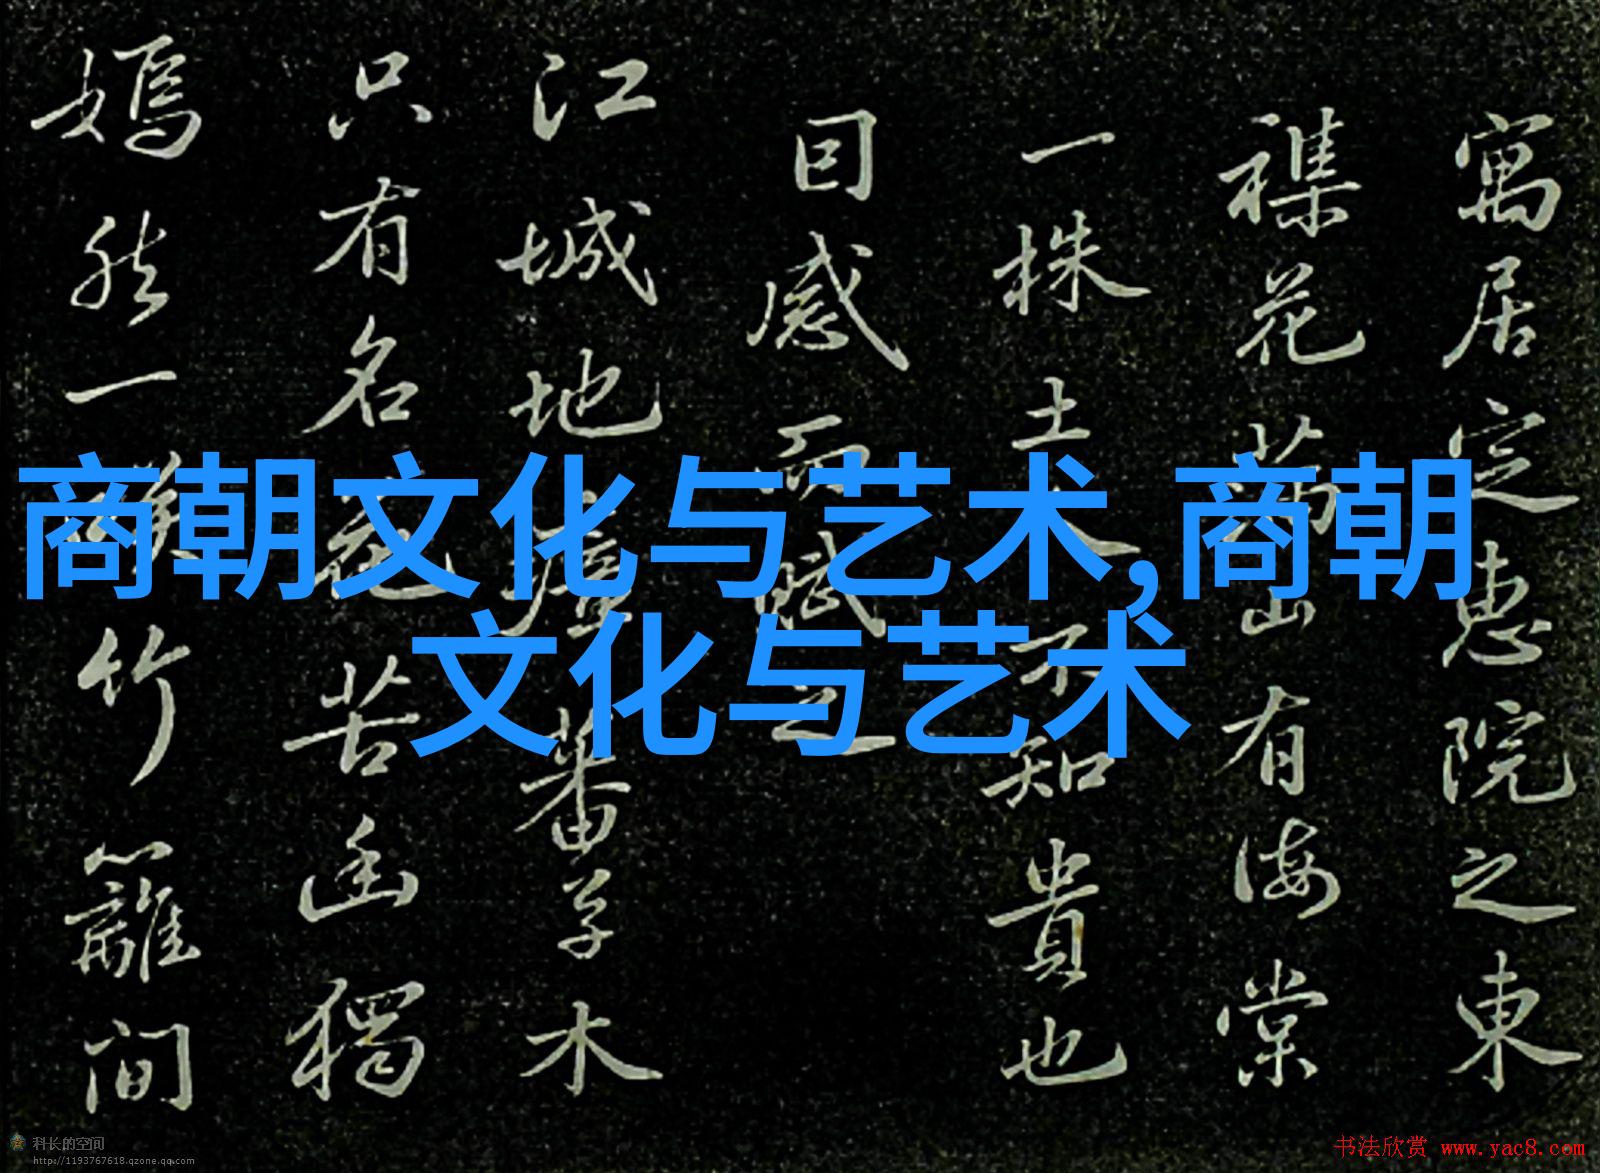 寓居定惠院之東
襍花滿山有海棠
一株土人不知貴也
因感而賦之
江城地瘴蕃草木
只有名花苦幽獨
嫣然一笑竹籬間
商朝文化与艺术,商朝
文化与艺术
科长的空间
http://1193767618.qzone.qq.com
书法欣赏 www.yac8.com